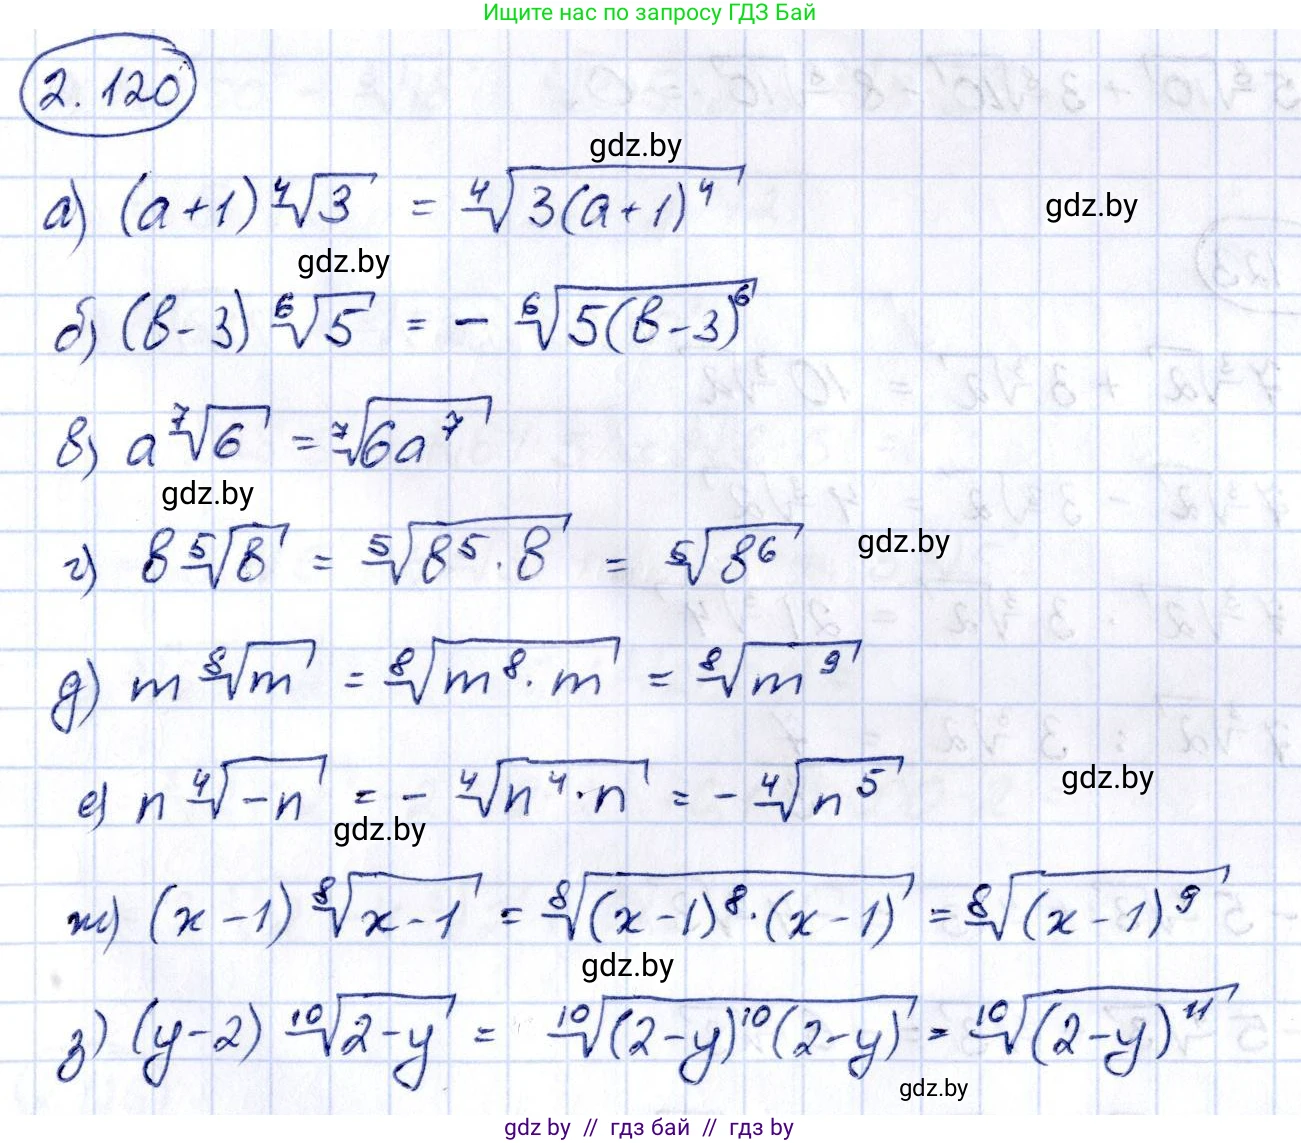 Ищите нас по запросу ГДЗ Бай
2.120
gdz.by
а) (a+1) ∜3 = ∜(3(a+1)⁴)
gdz.by
gdz.by
б) (в-3) ⁶√5 = - ⁶√(5(в-3)⁶)
в) a ⁷√6 = ⁷√(6a⁷)
gdz.by
г) в ⁵√в = ⁵√(в⁵·в) = ⁵√(в⁶)
gdz.by
д) m ⁸√m = ⁸√(m⁸·m) = ⁸√(m⁹)
е) n ∜(-n) = - ∜(n⁴·n) = - ∜(n⁵)
gdz.by
gdz.by
ж) (x-1) ⁸√(x-1) = ⁸√((x-1)⁸·(x-1)) = ⁸√((x-1)⁹)
gdz.by
з) (y-2) ¹⁰√(2-y) = ¹⁰√((2-y)¹⁰(2-y)) = ¹⁰√((2-y)¹¹)
gdz.by
gdz.by // гдз бай // гдз by